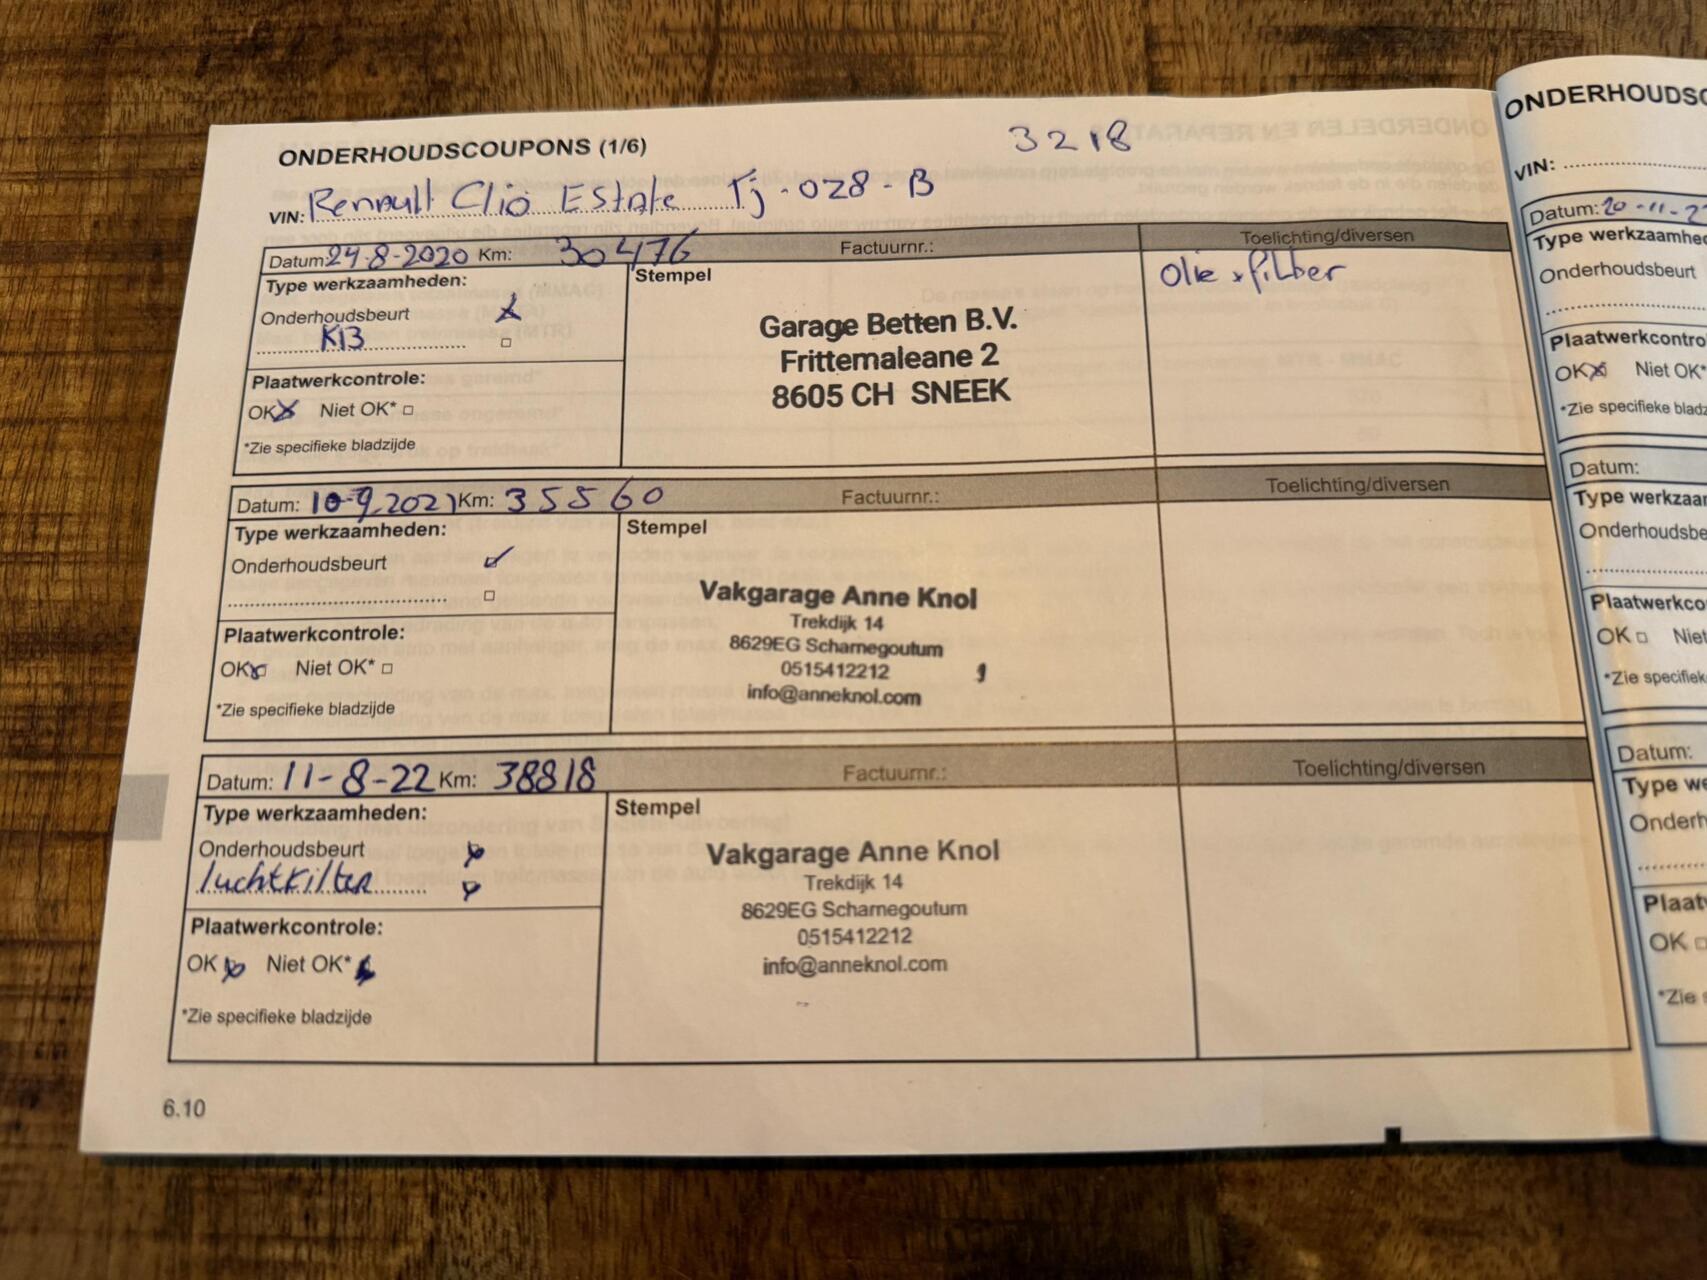 ONDERHOUDSCOUPONS (1/6)
3218
VIN: Renault Clio Estate Tj-028-B
Datum: 24-8-2020 Km: 30476 Factuurnr.: Toelichting/diversen
Type werkzaamheden:
Stempel
Olie + filter
Onderhoudsbeurt
K13
Garage Betten B.V.
Frittemaleane 2
8605 CH SNEEK
Plaatwerkcontrole:
OK Niet OK*
*Zie specifieke bladzijde
Datum: 10-9-2021 Km: 35560 Factuurnr.: Toelichting/diversen
Type werkzaamheden:
Stempel
Onderhoudsbeurt
Vakgarage Anne Knol
Trekdijk 14
8629EG Scharnegoutum
0515412212
info@anneknol.com
Plaatwerkcontrole:
OK Niet OK*
*Zie specifieke bladzijde
Datum: 11-8-22 Km: 38818 Factuurnr.: Toelichting/diversen
Type werkzaamheden:
Stempel
Onderhoudsbeurt
luchtfilter
Vakgarage Anne Knol
Trekdijk 14
8629EG Scharnegoutum
0515412212
info@anneknol.com
Plaatwerkcontrole:
OK Niet OK*
*Zie specifieke bladzijde
6.10
VIN:
Datum: 20-11-2
Onderhoudsbeurt
OK Niet OK*
Datum:
OK Niet
Datum:
OK
*Zie